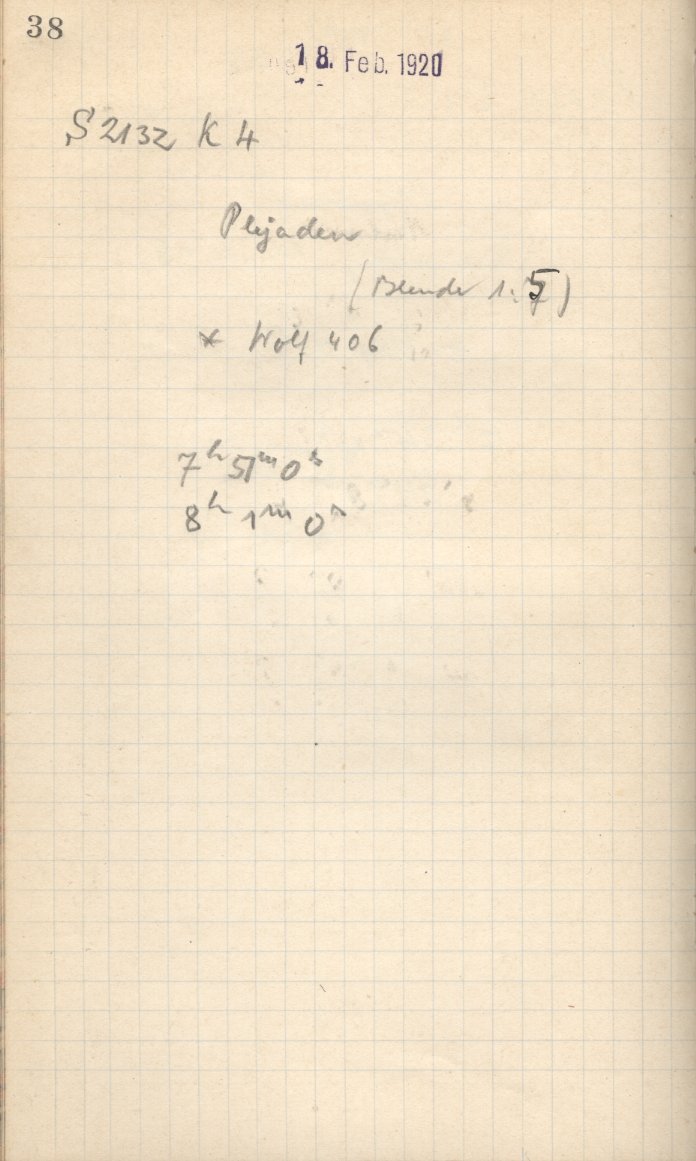 38
18. Feb. 1920
S 2132 K 4
Plejaden
(Blende 1:5)
* Wolf 406
7ʰ 51ᵐ 0ˢ
8ʰ 1ᵐ 0ˢ